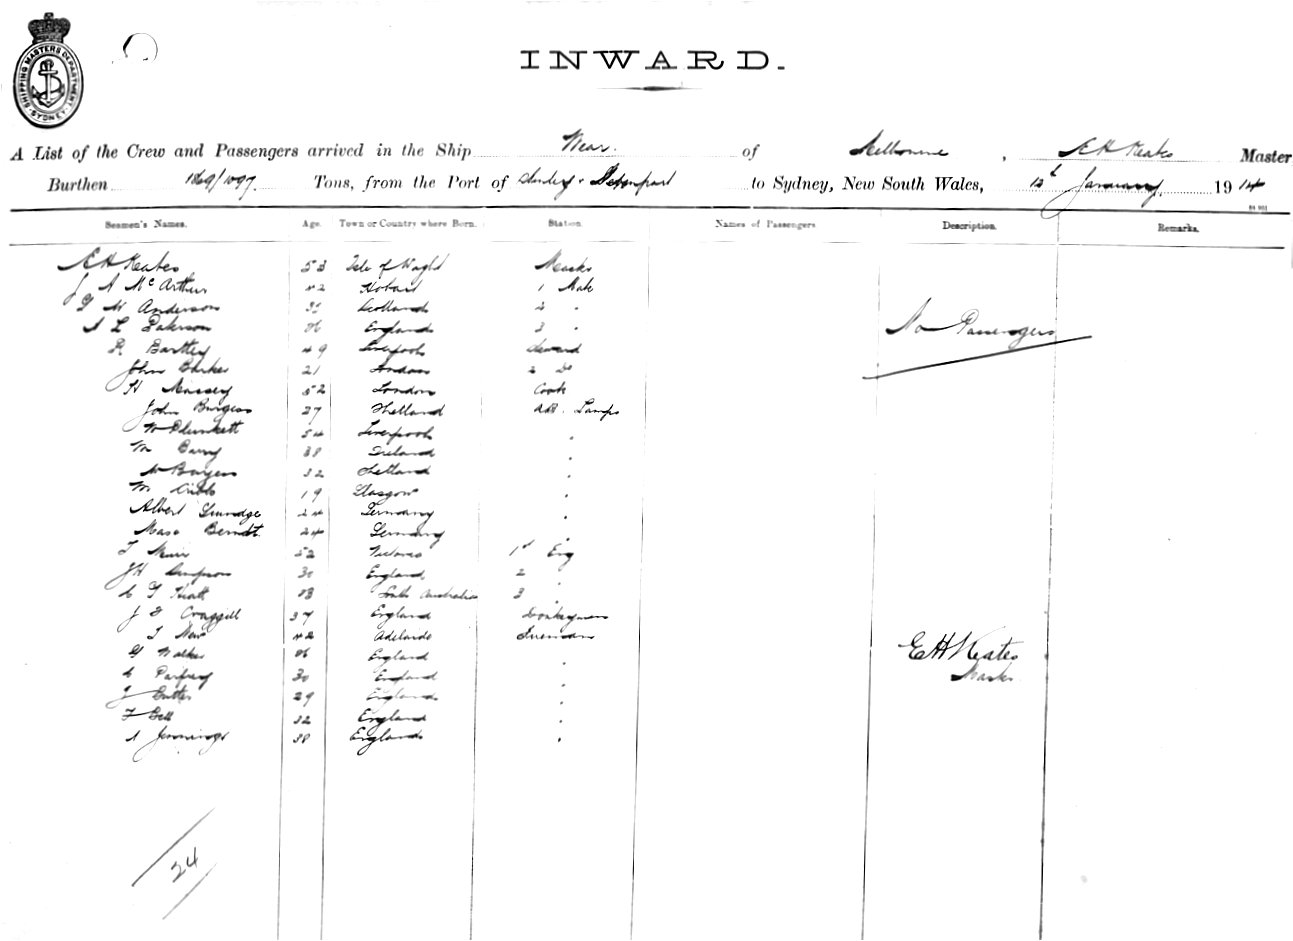 SHIPPING MASTERS DEPARTMENT SYDNEY
INWARD.
A List of the Crew and Passengers arrived in the Ship Wear. of Melbourne, E H Keates Master
Burthen 1869/1097. Tons, from the Port of & Devonport to Sydney, New South Wales, 12th January 1914
Seamen's Names. Age. Town or Country where Born. Station. Names of Passengers Description. Remarks.
E H Keates 53 Isle of Wight Master
J A McArthur 42 Hobart 1 Mate
W Anderson Scotland 2 "
A L England 3 "
No Passengers
R Bartley 49 Liverpool Steward
John Barker 21 London 2 Do
H Massey 52 London Cook
John Burgess 27 Shetland A.B. Lamps
W Plunkett 54 Liverpool "
M Barry 38 Ireland "
W Burgess 32 Shetland "
M 19 Glasgow "
Albert 24 Germany "
Berndt 24 Germany "
T Muir 52 Victoria 1st Eng
J H Simpson 30 England 2 "
Hiatt South Australia 3 "
J F Craggill 37 England Donkeyman
T New 42 Adelaide Fireman
E H Keates
Master
G Walker England "
30 England "
J Butler 29 England "
F Bell 32 England "
A Jennings 38 England "
24